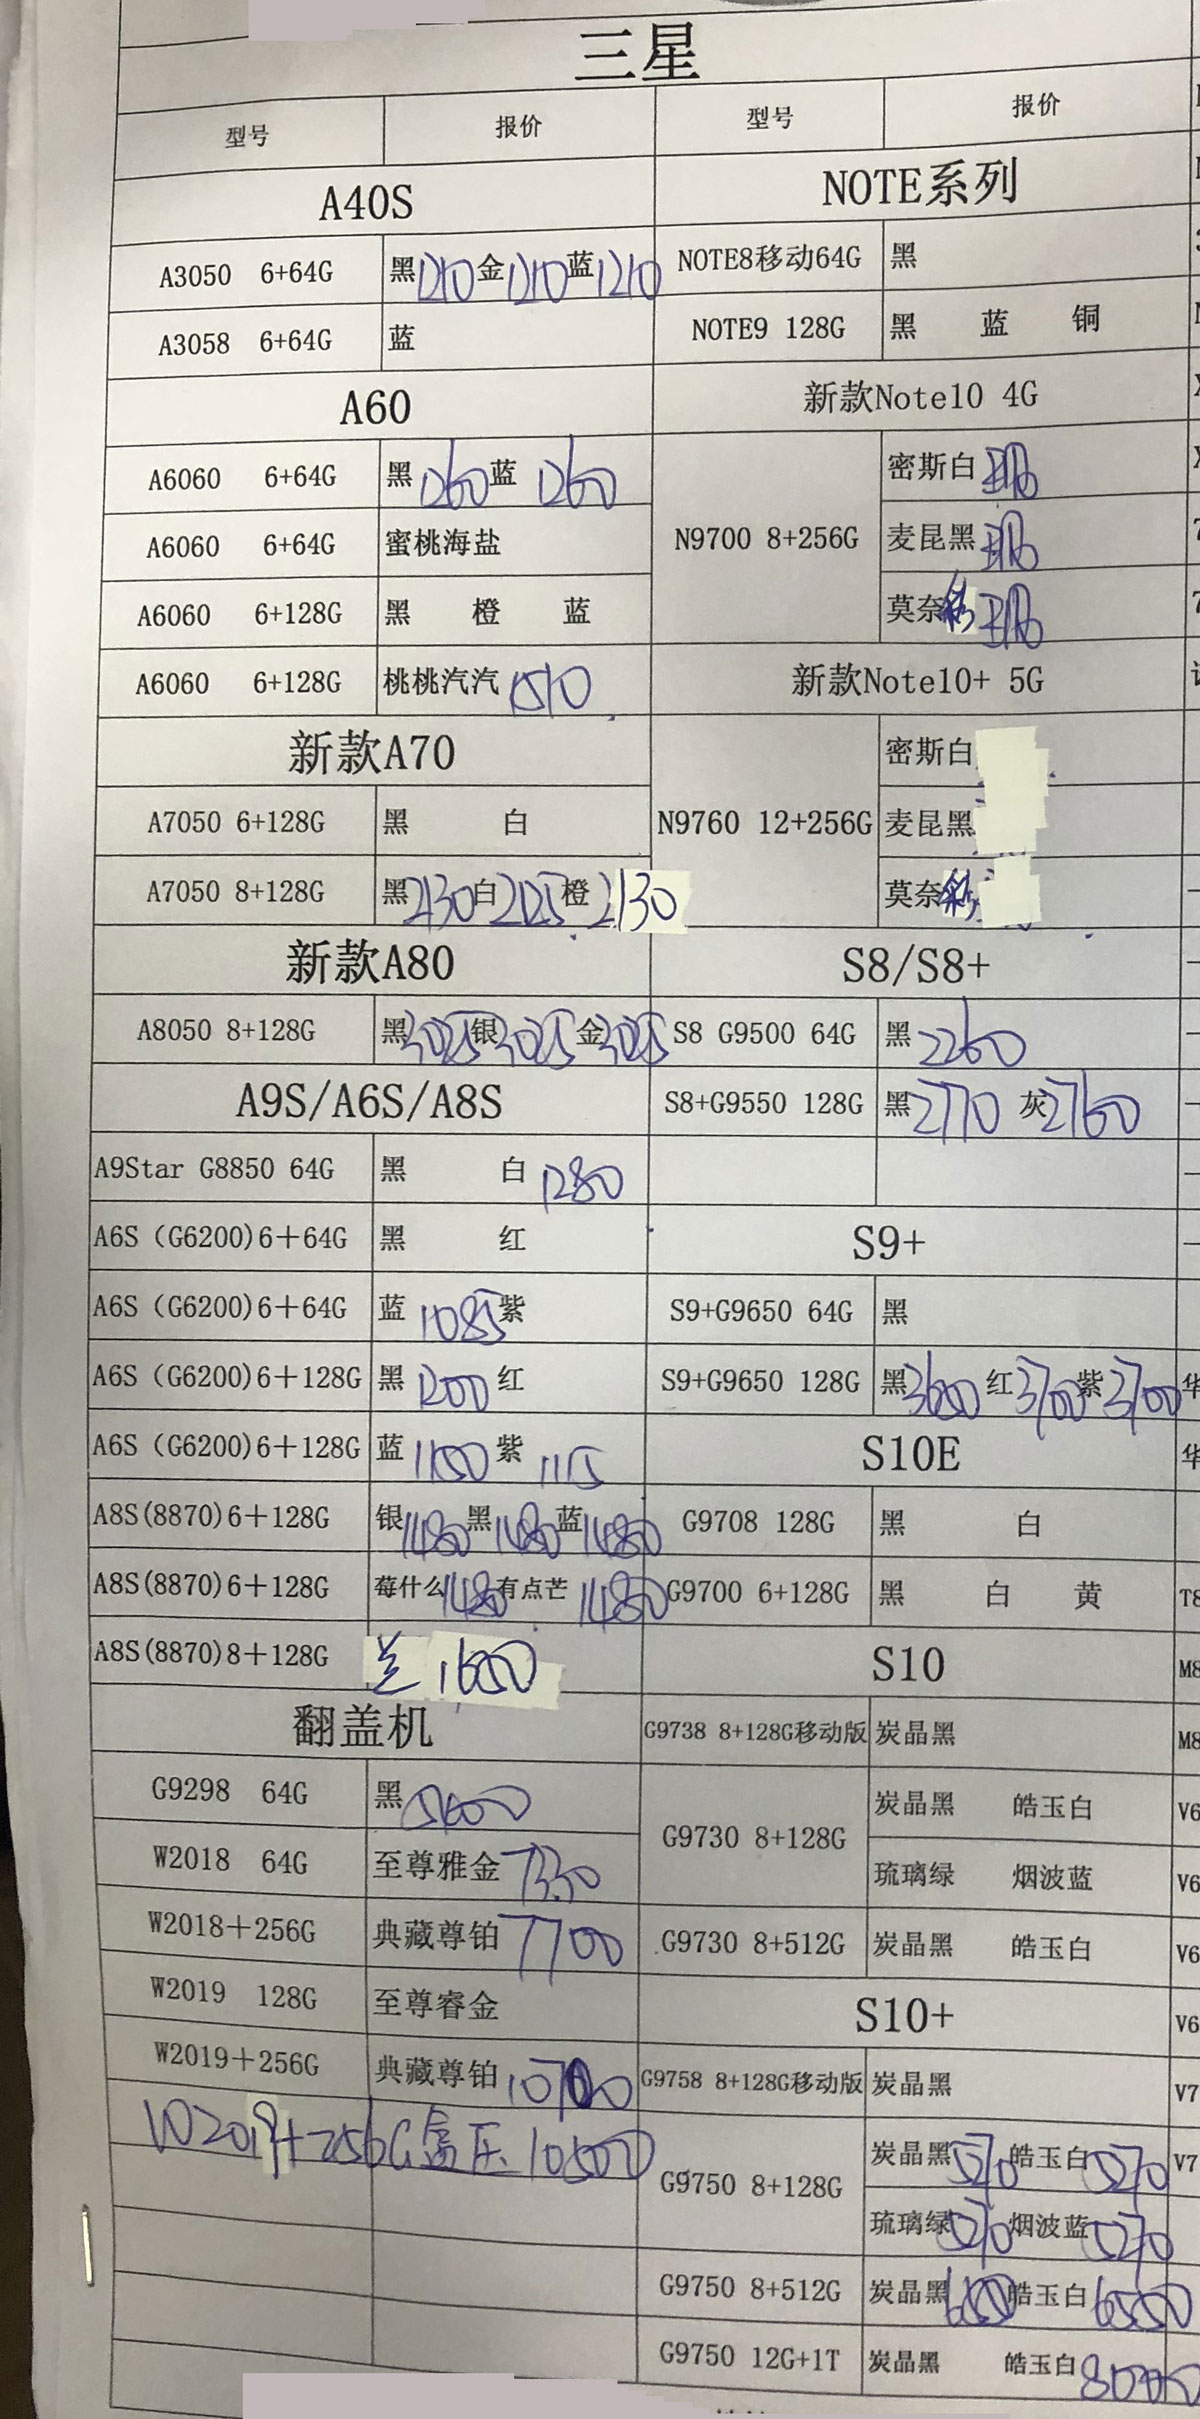 三星
型号 报价 型号 报价
A40S
A3050 6+64G 黑1210金1210蓝1210
A3058 6+64G 蓝
A60
A6060 6+64G 黑1260蓝1260
A6060 6+64G 蜜桃海盐
A6060 6+128G 黑 橙 蓝
A6060 6+128G 桃桃汽汽1510
新款A70
A7050 6+128G 黑 白
A7050 8+128G 黑2130白2125橙2130
新款A80
A8050 8+128G 黑3025银3025金3025
A9S/A6S/A8S
A9Star G8850 64G 黑 白1280
A6S（G6200)6+64G 黑 红
A6S（G6200)6+64G 蓝1085紫
A6S（G6200)6+128G 黑1200红
A6S（G6200)6+128G 蓝1150紫1115
A8S(8870)6+128G 银1480黑1480蓝1480
A8S(8870)6+128G 莓什么1480有点芒1480
A8S(8870)8+128G 1650
翻盖机
G9298 64G 黑
W2018 64G 至尊雅金7330
W2018+256G 典藏尊铂7700
W2019 128G 至尊睿金
W2019+256G 典藏尊铂
W2019+256G盒压10500
NOTE系列
NOTE8移动64G 黑
NOTE9 128G 黑 蓝 铜
新款Note10 4G
N9700 8+256G 密斯白
麦昆黑
莫奈彩
新款Note10+ 5G
N9760 12+256G 密斯白
麦昆黑
莫奈彩
S8/S8+
S8 G9500 64G 黑2260
S8+G9550 128G 黑2770 灰2760
S9+
S9+G9650 64G 黑
S9+G9650 128G 黑 红3700紫3700
S10E
G9708 128G 黑 白
G9700 6+128G 黑 白 黄
S10
G9738 8+128G移动版 炭晶黑
G9730 8+128G 炭晶黑 皓玉白
琉璃绿 烟波蓝
G9730 8+512G 炭晶黑 皓玉白
S10+
G9758 8+128G移动版 炭晶黑
G9750 8+128G 炭晶黑5270皓玉白5270
琉璃绿5270烟波蓝5270
G9750 8+512G 炭晶黑 皓玉白6550
G9750 12G+1T 炭晶黑 皓玉白8000
华
华
T8
M8
M8
V6
V6
V6
V6
V7
V7